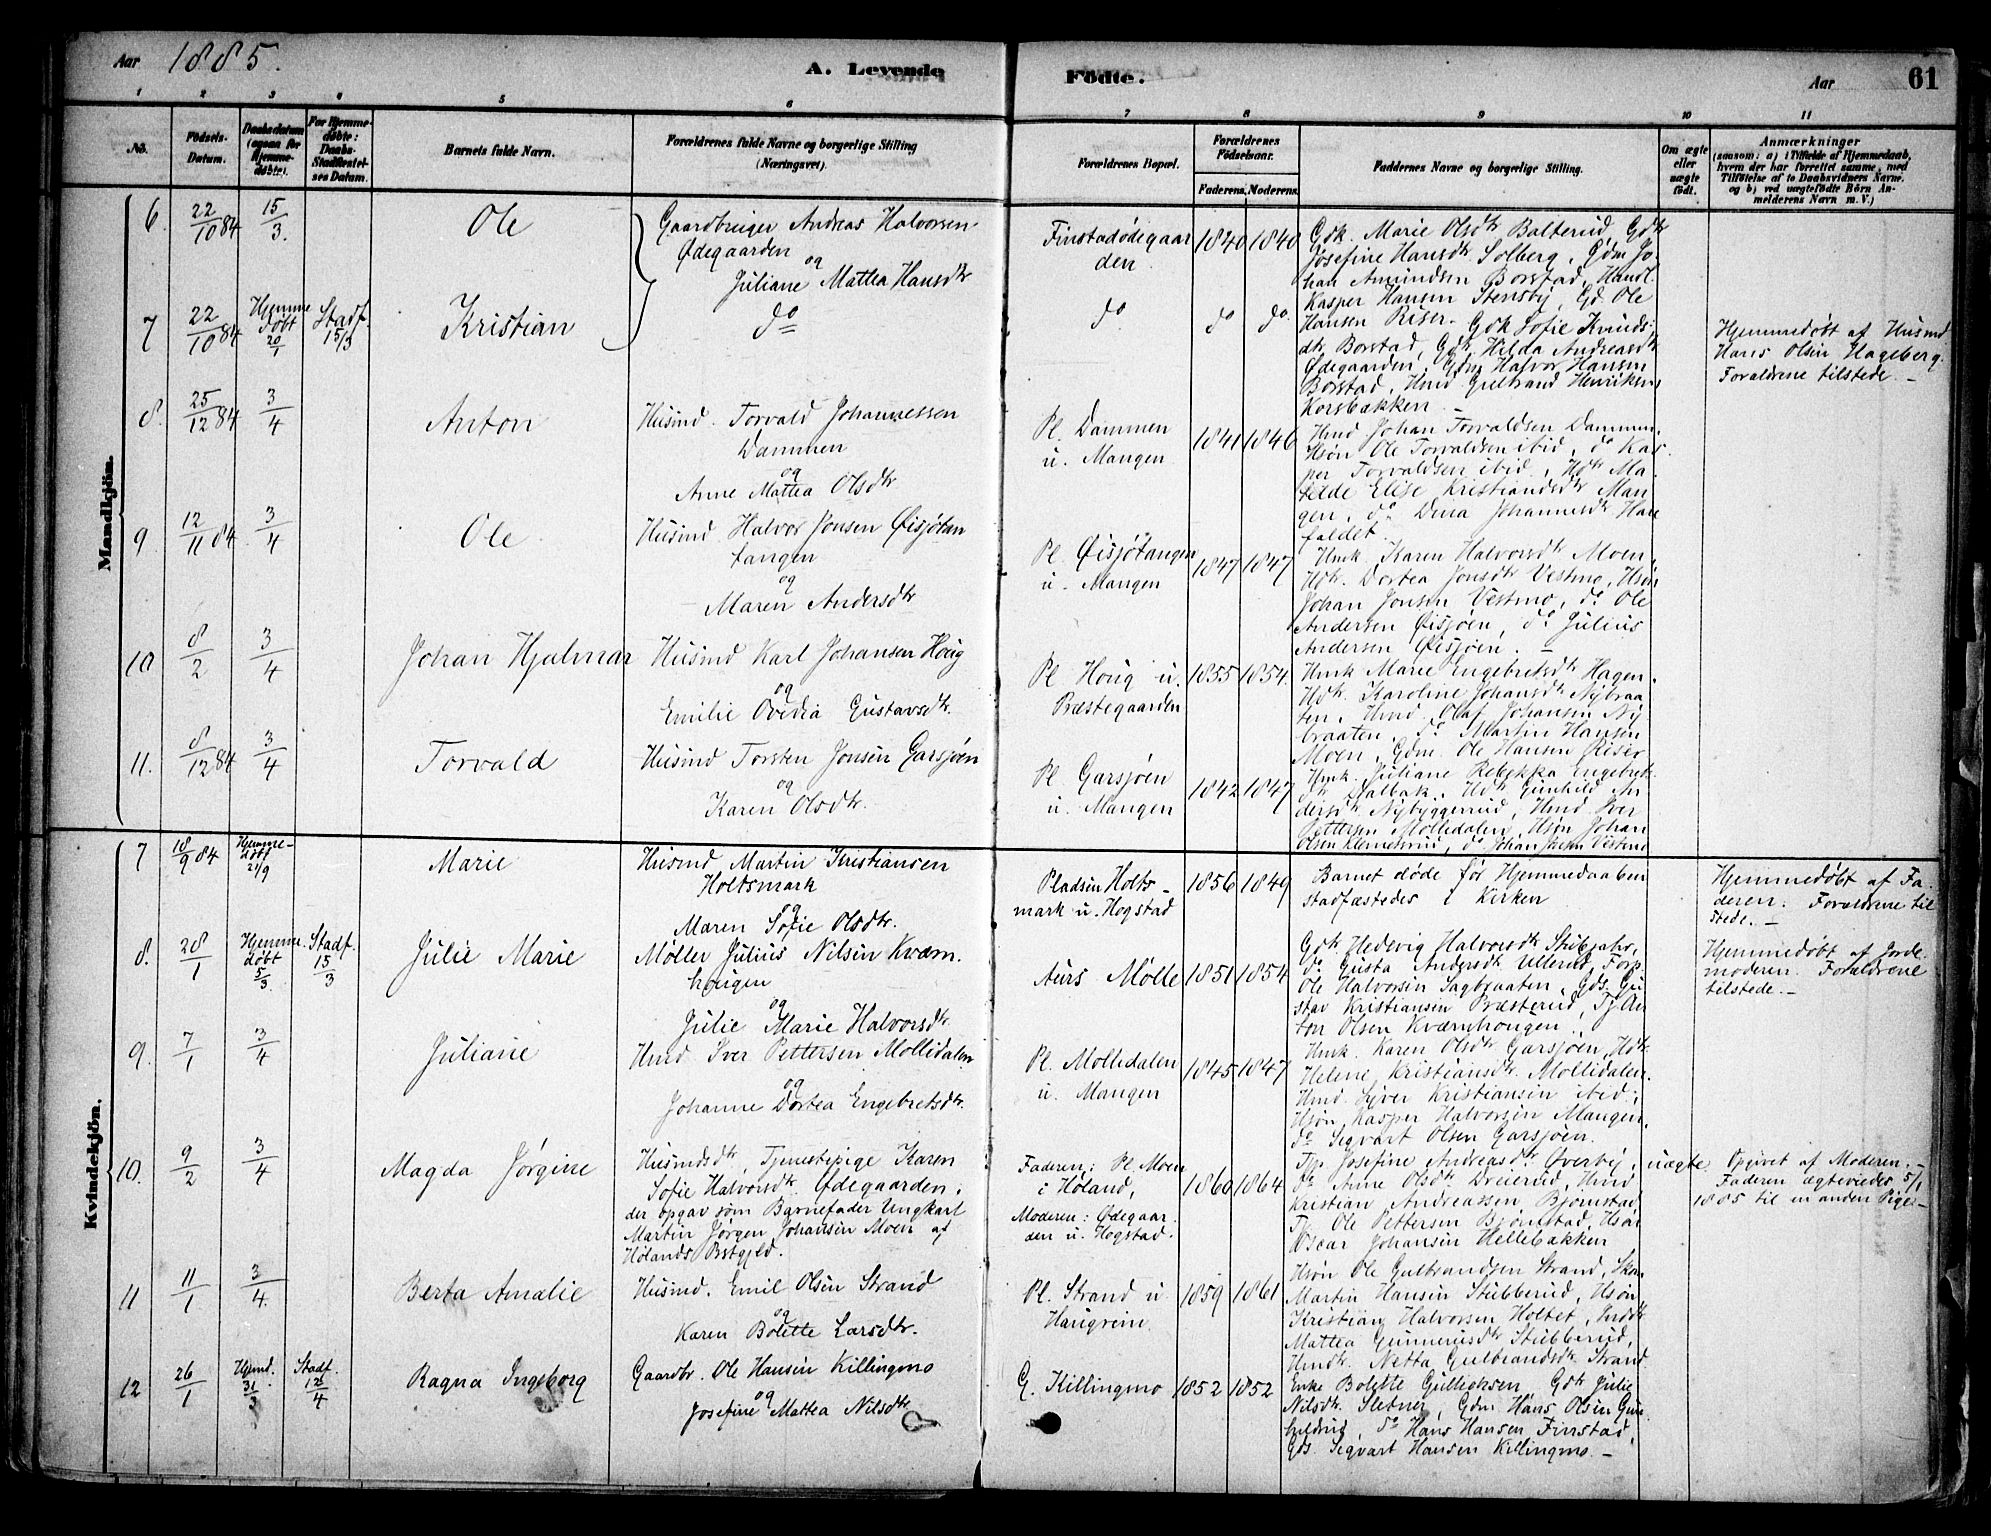 Aar 1885.
A. Levende Fødte.
Aar
61
1 2 3 4 5 6 7 8 9 10 11
No.
Fødsels-Datum.
Daabsdatum (ogsaa for Hjemmedøbte).
For Hjemmedøbte: Daabs-Stadfæstelses Datum.
Barnets fulde Navn.
Forældrenes fulde Navne og borgerlige Stilling (Næringsvei).
Forældrenes Bopæl.
Forældrenes Fødselsaar.
Faderens. Moderens.
Faddernes Navne og borgerlige Stilling.
Om ægte eller uægte født.
Anmærkninger
(saasom: a) i Tilfælde af Hjemmedaab, hvem der har forrettet samme, med Tilføielse af to Daabsvidners Navne, og b) ved uægtefødte Børn Anmelderens Navn m. V.)
Mandkjøn.
6. 22/10 84 15/3. Ole
Gaardbruger Andreas Halvorsen
Ødegaarden
og
Juliane Mattea Hansdtr
Finstadødegaar
den
1840 1840
Gdk. Marie Olsdtr Balterud, Gdtr
Josefine Hansdtr Solberg, Gdm Jo-
han Amundsen Borstad, Handl.
Kasper Hansen Stensby, Gd. Ole
Hansen Riser.
7 22/10 84 Hjemme døbt 20/1 Stadf. 15/3 Kristian
do
do do do
Gdk Sofie Knuds-
dtr Borstad, Gdtr. Hilda Andreasdtr
Ødegaarden, Gdm Halvor Hansen
Borstad, Hmd Gulbrand Henriksen
Korsbakken. -
Hjemmedøbt af Husmd
Hans Olsen Hageberg.
Forældrene tilstede. -
8. 25/12 84 3/4 Anton
Husmd. Torvald Johannessen
Dammen
og
Anne Mattea Olsdtr
Pl. Dammen
u. Mangen
1841 1846
Hmd Johan Torvaldsen Dammen.
Hsøn Ole Torvaldsen ibid, do Kas-
per Torvaldsen ibid, Hdtr Ma-
tilde Elise Kristiansdtr Man
gen, do Dina Johannesdtr
9. 12/11 84. 3/4 Ole
Husmd. Halvor Jonsen Øisjøtan
tangen
og
Maren Andersdtr
Pl. Øisjøtangen
u. Mangen
1847 1847
Hmk Karen Halvorsdtr Moen,
Hdtr. Dortea Jonsdtr Vestmo, Hsøn
Johan Jonsen Vestmo, do Ole
Andersen Øisjøen, do Julius
Andersen Øisjøen. -
10 8/2 3/4 Johan Hjalmar
Husmd Karl Johansen Houg
og
Emilie Ovedia Gustavsdtr.
Pl Houg u.
Præstegaarden
1855 1854.
Hmk Marie Engebretsdtr Hagen.
Hdtr. Karoline Johansdtr Nybraa
ten. Hmd. Olaf Johansen Ny
braaten, do Martin Hansen
Moen, Gdm. Ole Hansen Riser
11. 8/12 84 3/4 Torvald
Husmd Torsten Jonsen Garsjøen
og
Karen Olsdtr.
Pl. Garsjøen
u. Mangen
1842 1847
Hmk. Juliane Rebekka Engebret-
dtr Dalbak. Hdtr Gunhild An
dersdtr Nybyggerrud, Hmd Iver
Pettersen Mollidalen, Hsøn Johan
Olsen Klemetsrud, do Johan Jonsen Vestmo
Kvindekjøn.
7 18/9 84 Hjemme-døbt 21/9 Marie
Husmd Martin Kristiansen
Holtsmark
og
Maren Sofie Olsdtr.
Pladsen Holts-
mark u. Hogstad
1856 1849
Barnet døde før Hjemmedaaben
stadfæstedes i Kirken
Hjemmedøbt af Fa-
deren. Forældrene til
stede. -
8. 28/1 Hjemme døbt 5/3. Stadf. 15/3 Julie Marie
Møller Julius Nilsen Kværn-
hougen
og
Julie Marie Halvorsdtr.
Aurs Mølle
1851 1854
Gdtr. Hedevig Halvorsdtr Stubjahr,
do Gusta Andersdtr Ullerud, Forp.
Ole Halvorsen Sagbraaten, Gds. Gu
stav Kristiansen Præsterud, Tj An
ton Olsen Kværnhougen.
Hjemmedøbt af Jorde-
moderen. Forældrene
tilstede. -
9. 7/1 3/4 Juliane
Hmd. Iver Pettersen Mollidalen
og
Johanne Dortea Engebretsdtr.
Pl. Mollidalen
u. Mangen
1845 1847
Hmk. Karen Olsdtr Garsjøen, Hdtr.
Helene Kristiansdtr. Mollidalen.
Hmd. Syver Kristiansen ibid,
Hsøn, Kasper Halvorsen Mangen,
do Segvart Olsen Garsjøen.
10. 9/2 3/4 Magda Jørgine
Husmdsdtr, Tjenestepige Karen
Sofie Halvorsdtr. Ødegaarden,
der opgav som Barnefader Ungkarl
Martin Jørgen Johansen Moen af
Hølands Prstgjeld.
Faderen: Pl. Moen
i Høland,
Moderen: Ødegaar-
den u. Hogstad.
1860 1864
Tjp. Josefine Andreasdtr Øverby,
do Anne Olsdtr Dreierud, Hmd
Kristian Andreassen Bjømstad
Tj. Ole Pettersen Bjømstad, Hsøn
Oscar Johansen Hellebakken
uægte
Opgivet af Moderen. -
Faderen ægteviedes 5/1
1885 til en anden Pige. -
11 11/1 3/4. Berta Amalie
Husmd. Emil Olsen Strand
og
Karen Bolette Larsdtr.
Pl. Strand u
Haugrem
1859 1861
Hsøn Ole Gulbrandsen Strand, Skom.
Martin Hansen Stubberud, Hsøn
Kristian Halvorsen Holtet, Inddtr
Mattea Gunnerusdtr Stubberud,
Hmdtr. Netta Gulbrandsdtr Strand
12 26/1 Hjemd. 31/3 Stadf. 12/4 Ragna Ingeborg
Gaardbr. Ole Hansen Killingmo
og
Josefine Mattea Nilsdtr
G. Killingmo
1852 1852
Enke Bolette Gulliksen, Gdtr Julie
Nilsdtr. Sletner, Gdm Hans Olsen Gun-
hildrud, do Hans Hansen Finstad,
Gds. Segvart Hansen Killingmo. -